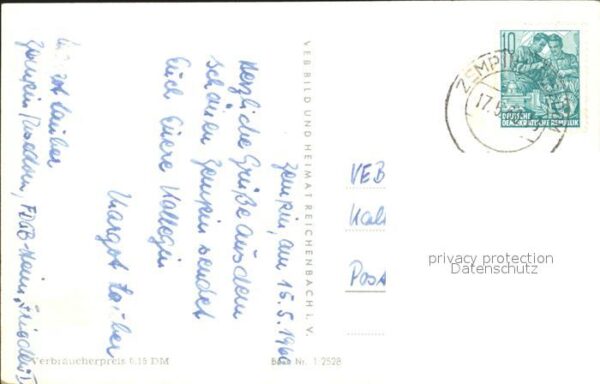 Zempin, am 15.5.1960
Herzliche Grüße aus dem
schönen Zempin sendet
Euch Eure Kollegin
Margot
Zempin/Usedom, FDGB-Heim "Frieden I"
VEB BILD UND HEIMAT REICHENBACH i. V.
10
DEUTSCHE
DEMOKRATISCHE REPUBLIK
ZEMPIN
17.5.
VEB
Post
privacy protection
Datenschutz
Verbraucherpreis 0,15 DM
Best. Nr. 1/2528